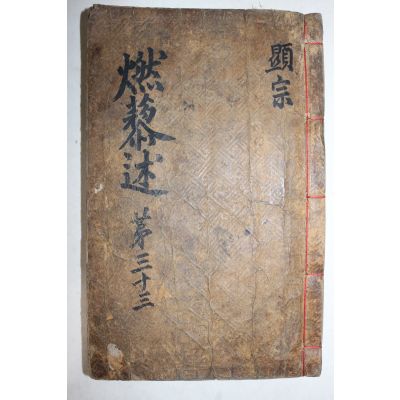 顯宗
燃藜述
茅三十三